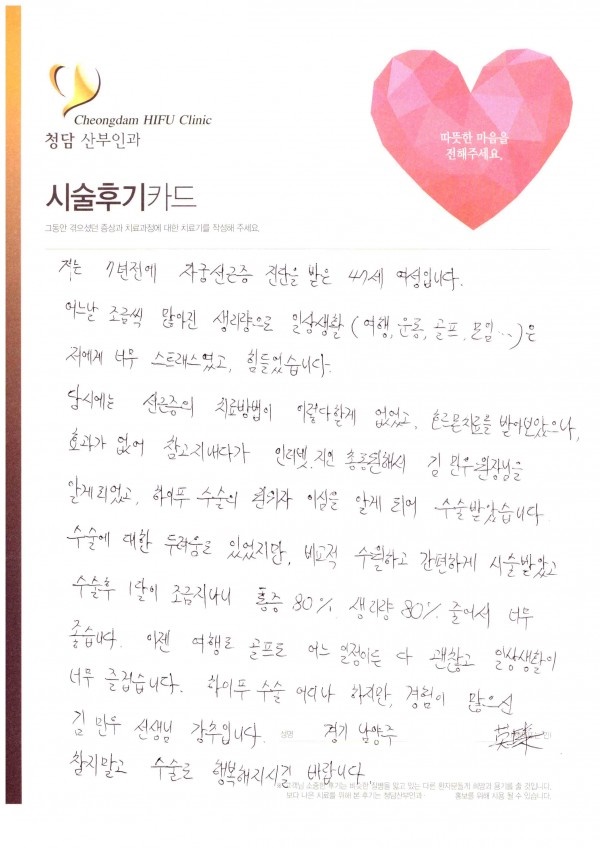 Cheongdam HIFU Clinic
청담 산부인과
따뜻한 마음을
전해주세요.
시술후기카드
그동안 겪으셨던 증상과 치료과정에 대한 치료기를 작성해 주세요.
저는 7년전에 자궁선근증 진단을 받은 47세 여성입니다.
어느날 조금씩 많아진 생리량으로 일상생활 (여행, 운동, 골프, 모임...)은
저에게 너무 스트레스였고, 힘들었습니다.
당시에는 선근증의 치료방법이 이렇다할게 없었고, 호르몬치료를 받아보았으나,
효과가 없어 참고지내다가 인터넷, 지인 총동원해서 김민우원장님을
알게되었고, 하이푸 수술의 권위자 이심을 알게 되어 수술받았습니다.
수술에 대한 두려움도 있었지만, 비교적 수월하고 간편하게 시술받았고
수술후 1달이 조금지나니 통증 80%, 생리량 80% 줄어서 너무
좋습니다. 이젠 여행도 골프도 어느 일정이든 다 괜찮고 일상생활이
너무 즐겁습니다. 하이푸 수술 어디나 하지만, 경험이 많으신
김민우 선생님 강추입니다. 성명 경기 남양주
참지말고 수술로 행복해지시길 바랍니다.
고객님 소중한 후기는, 비슷한 질병을 앓고 있는 다른 환자분들께 희망과 용기를 줄 것입니다.
보다 나은 치료를 위해 본 후기는 청담산부인과· 홍보를 위해 사용 될 수 있습니다.